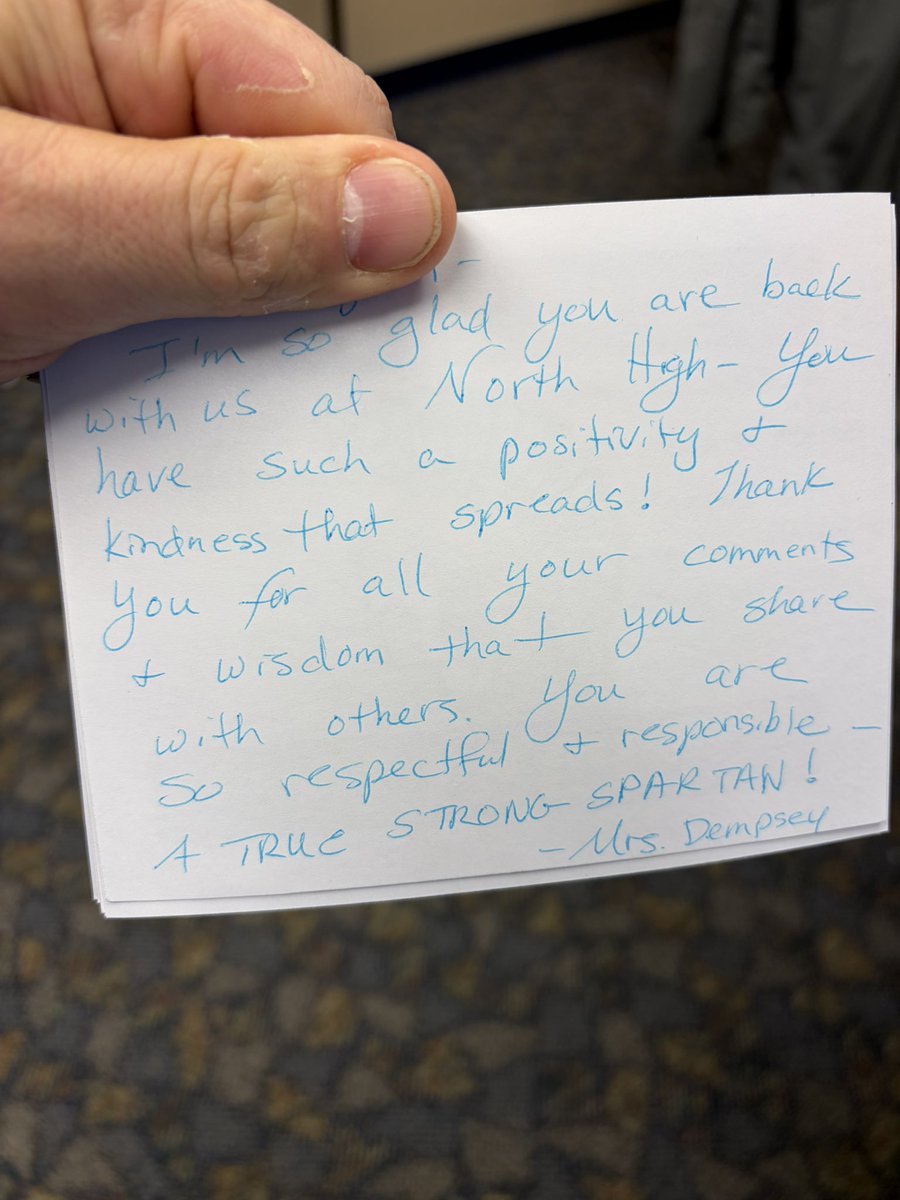 I'm so glad you are back
with us at North High- You
have such a positivity +
kindness that spreads! Thank
you for all your comments
+ wisdom that you share
with others. You are
so respectful + responsible -
A TRUE STRONG SPARTAN!
- Mrs. Dempsey